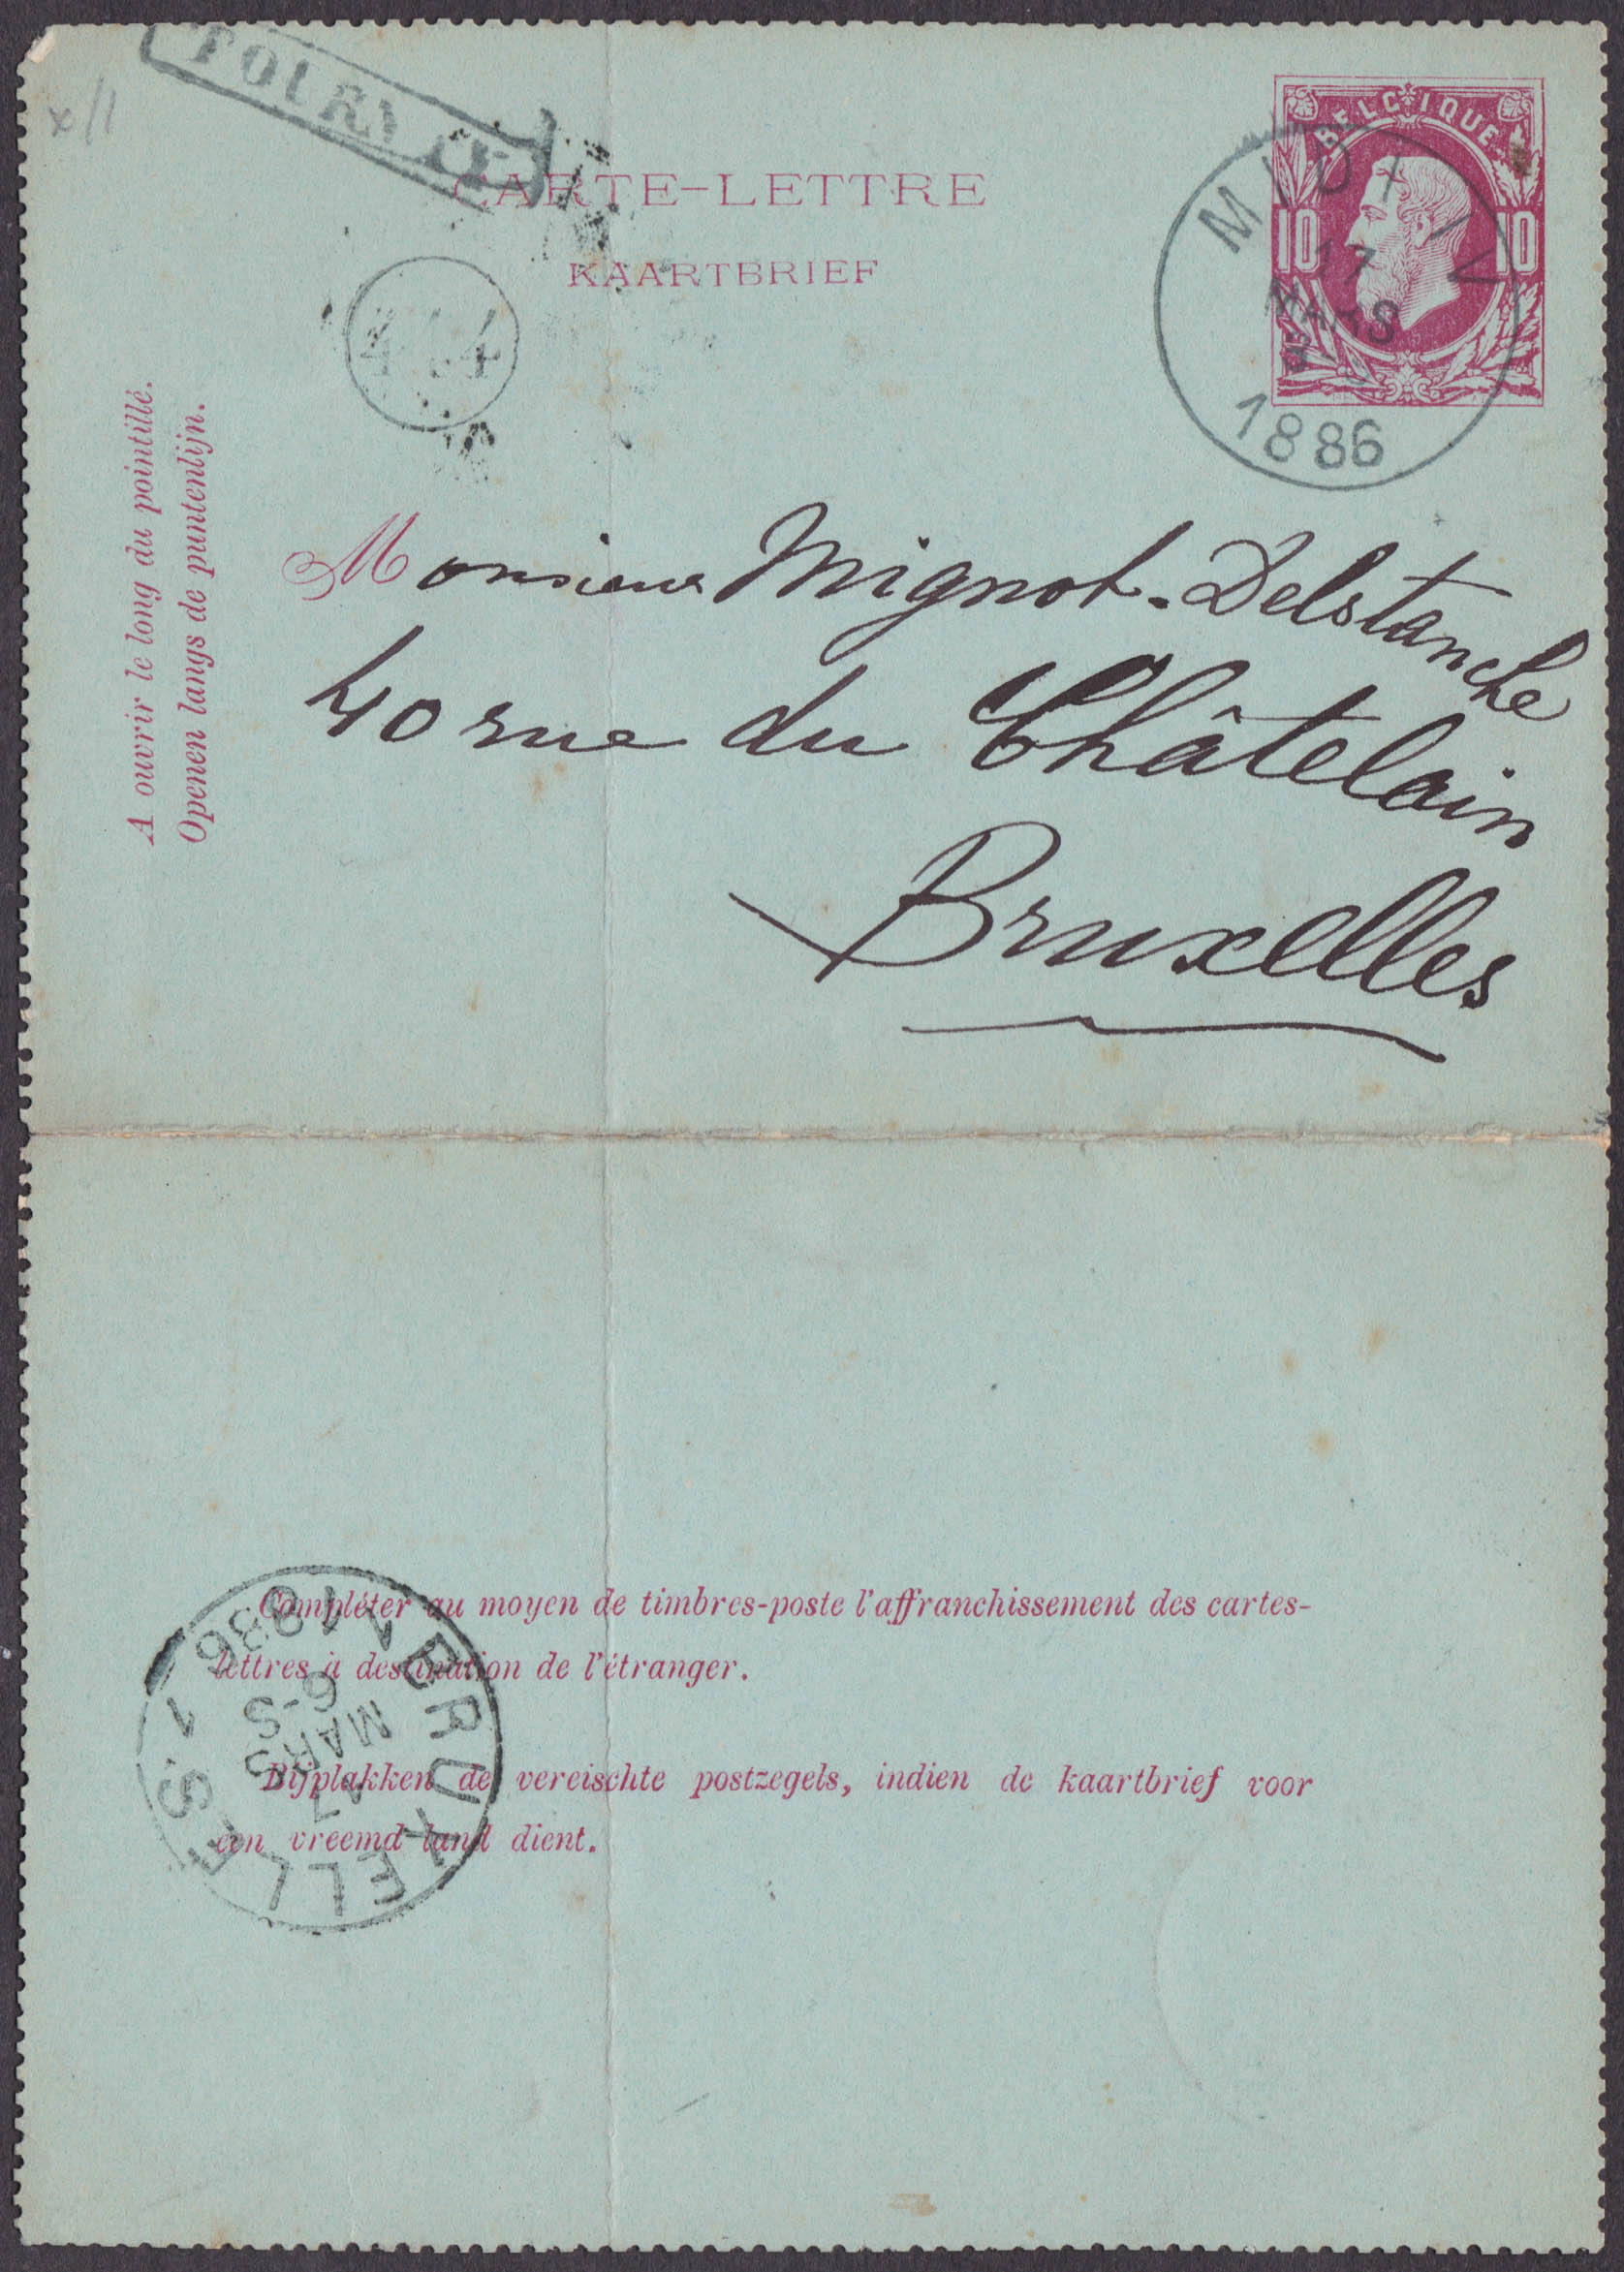 TOURNAI
x/1
CARTE-LETTRE
KAARTBRIEF
BELGIQUE
10 10
MIDI IV
17
MARS
3-S
1886
A ouvrir le long du pointillé.
Openen langs de puntenlijn.
Monsieur Mignot-Delstanche
40 rue du Châtelain
Bruxelles
Compléter au moyen de timbres-poste l'affranchissement des cartes-
lettres à destination de l'étranger.
Bijplakken de vereischte postzegels, indien de kaartbrief voor
een vreemd land dient.
BRUXELLES 1
17
MARS
6-S
1886